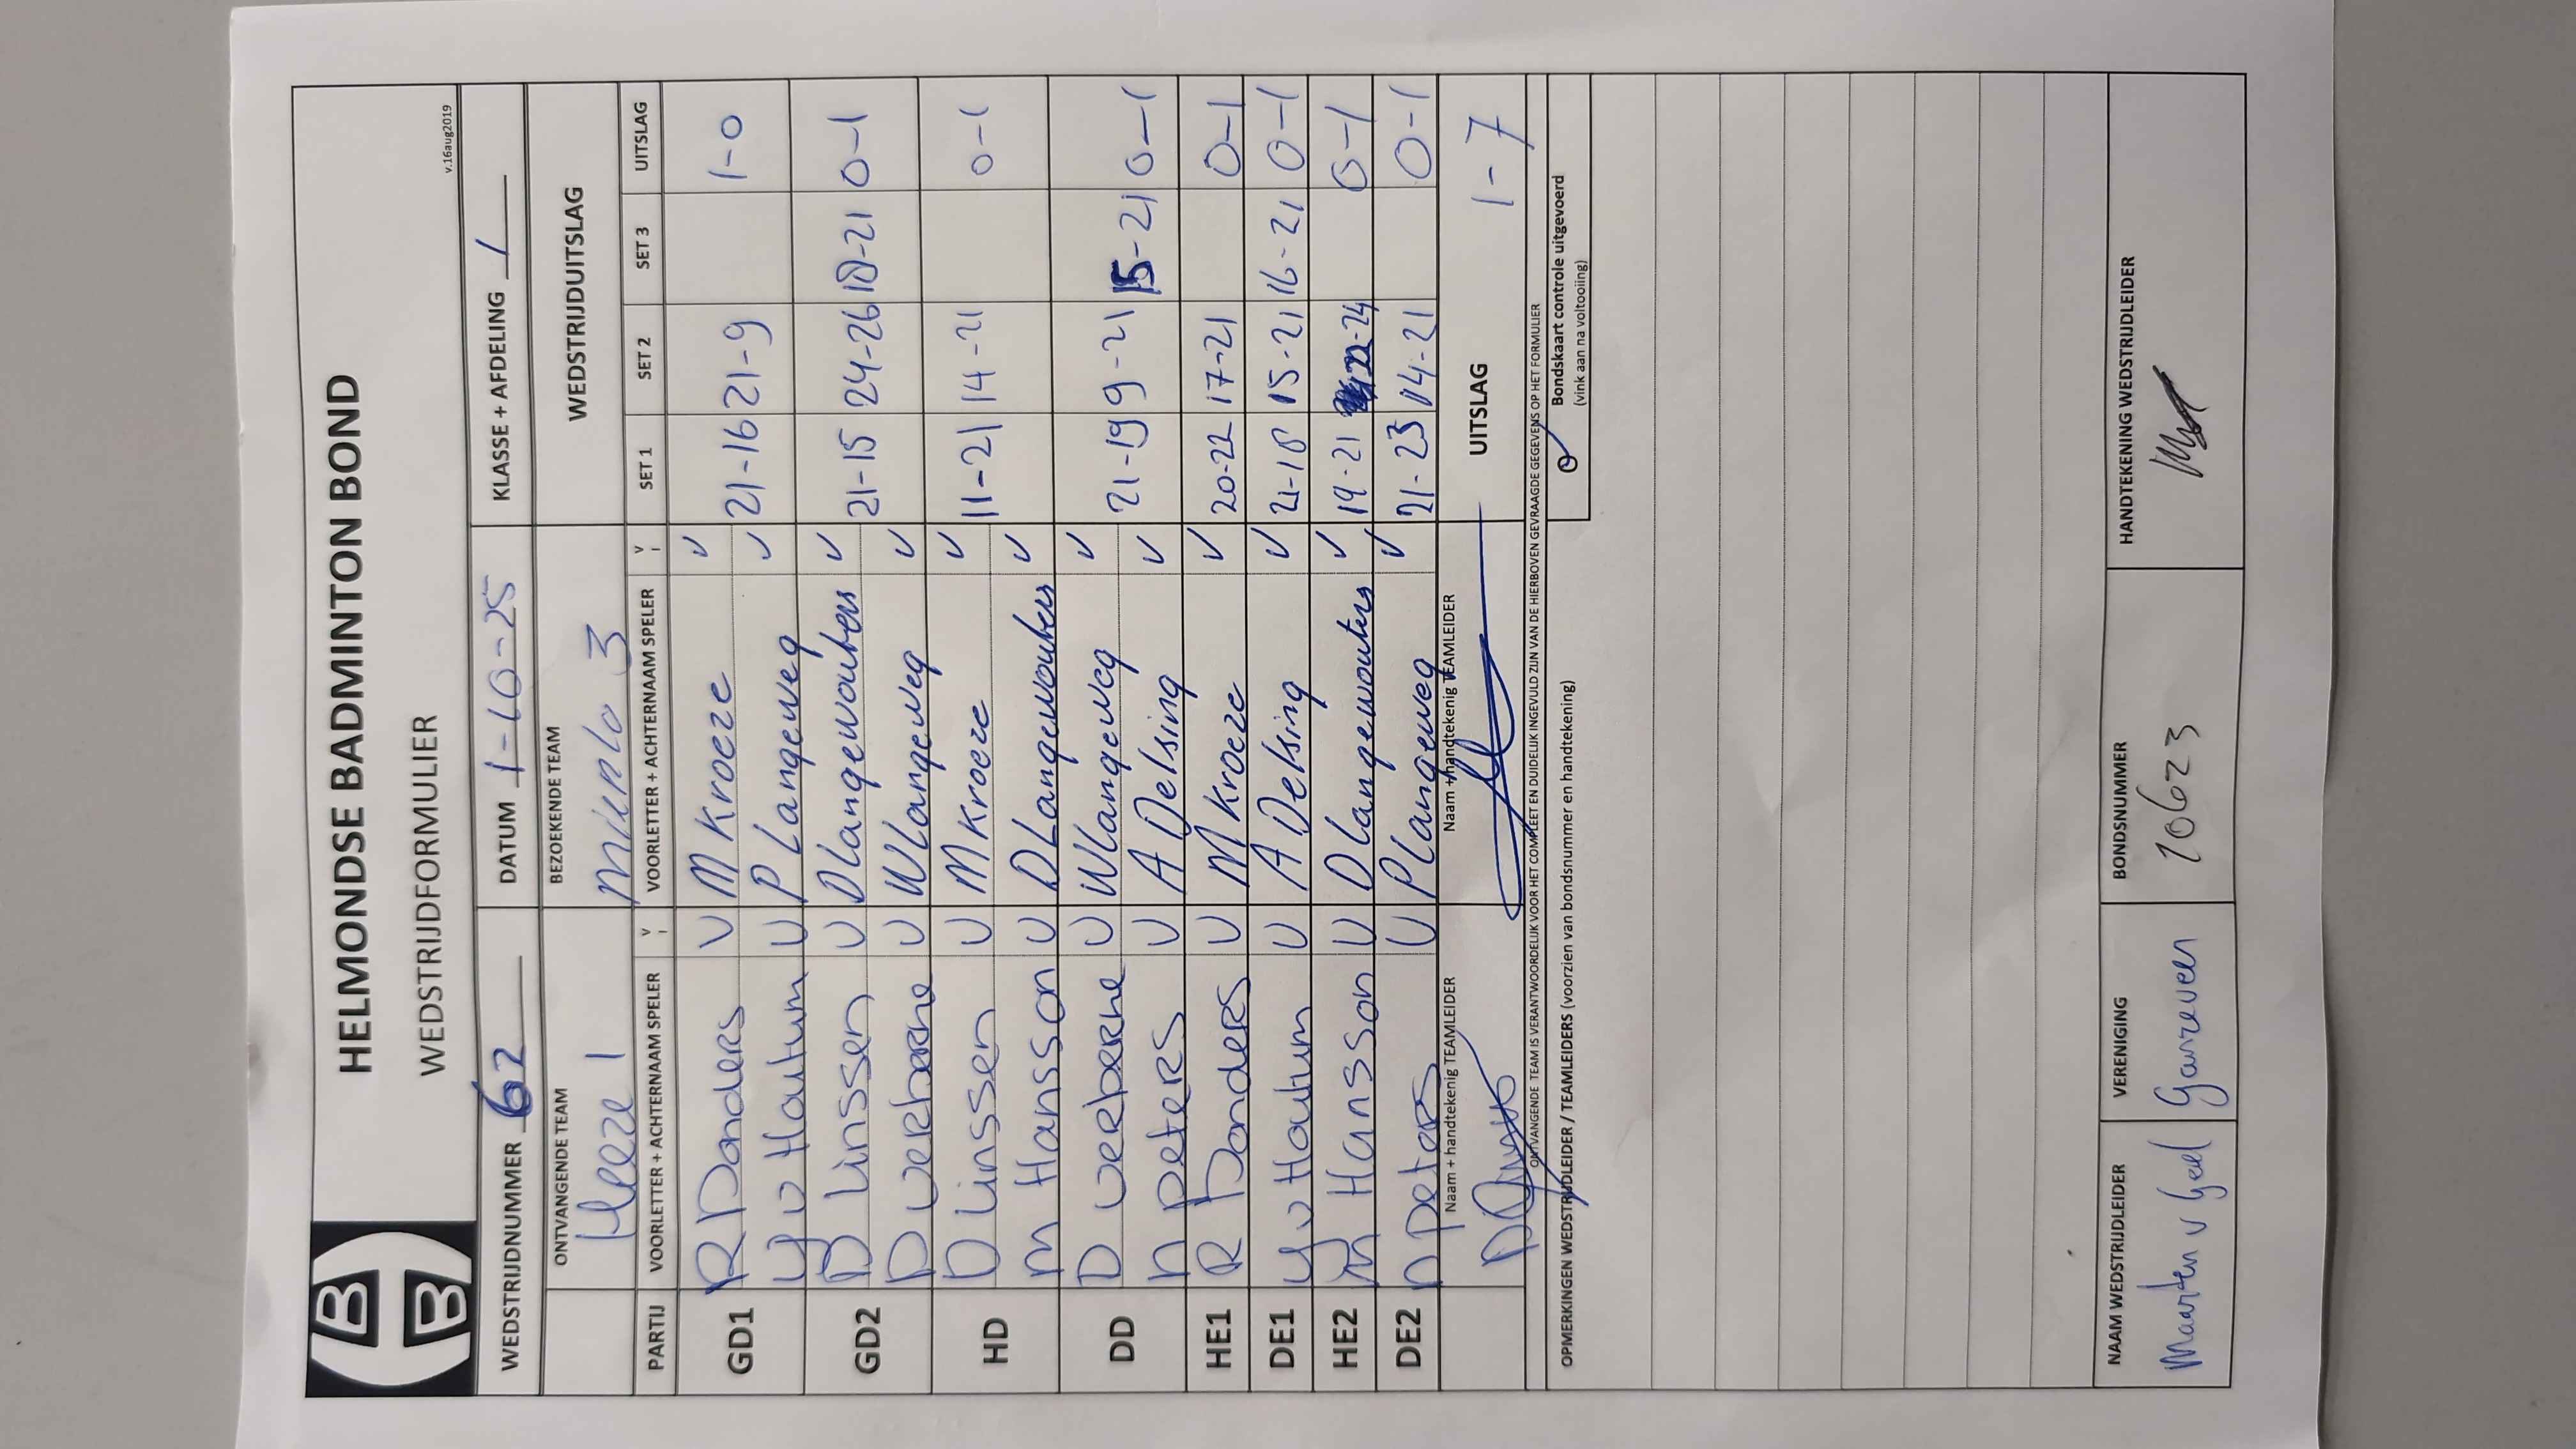 HELMONDSE BADMINTON BOND
WEDSTRIJDFORMULIER
v.16aug2019
WEDSTRIJDNUMMER 62 DATUM 1-10-25 KLASSE + AFDELING 1
ONTVANGENDE TEAM BEZOEKENDE TEAM WEDSTRIJDUITSLAG
Heeze 1 Mierlo 3
PARTIJ VOORLETTER + ACHTERNAAM SPELER V VOORLETTER + ACHTERNAAM SPELER V SET 1 SET 2 SET 3 UITSLAG
GD1 R Donders V M Kroeze V 21-16 21-9 1-0
Y v Houtum V P Langeweg V
GD2 D Linssen V D Langewouters V 21-15 24-26 18-21 0-1
D Verberne V W Langeweg V
HD D Linssen V M Kroeze V 11-21 14-21 0-1
M Hansson V D Langewouters V
DD D Verberne V W Langeweg V 21-19 9-21 15-21 0-1
N Peters V A Delsing V
HE1 R Donders V M Kroeze V 20-22 17-21 0-1
DE1 Y v Houtum V A Delsing V 21-18 15-21 16-21 0-1
HE2 M Hansson V D Langewouters V 19-21 22-24 0-1
DE2 N Peters V P Langeweg V 21-23 14-21 0-1
Naam + handtekenig TEAMLEIDER Naam + handtekenig TEAMLEIDER UITSLAG 1-7
ONTVANGENDE TEAM IS VERANTWOORDELIJK VOOR HET COMPLEET EN DUIDELIJK INGEVULD ZIJN VAN DE HIERBOVEN GEVRAAGDE GEGEVENS OP HET FORMULIER
OPMERKINGEN WEDSTRIJDLEIDER / TEAMLEIDERS (voorzien van bondsnummer en handtekening)
Bondskaart controle uitgevoerd
(vink aan na voltooiing)
NAAM WEDSTRIJDLEIDER VERENIGING BONDSNUMMER HANDTEKENING WEDSTRIJDLEIDER
Maarten v Geel Ganzeveer 20623